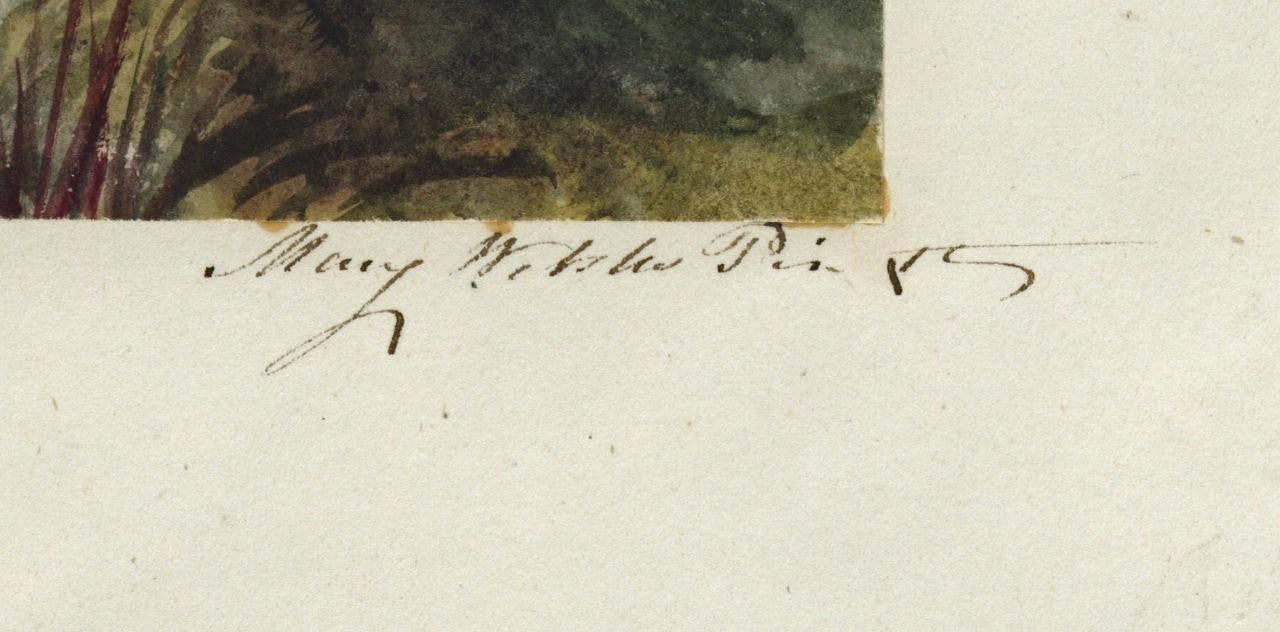 Mary Webster Pinxt